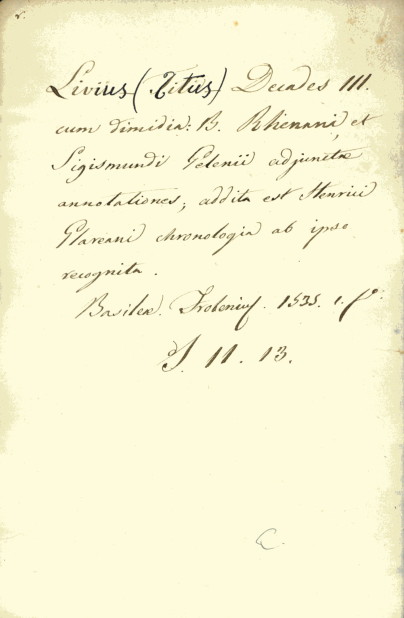 Livius (Titus) Decades III.
cum dimidia: B. Rhenani, et
Sigismundi Gelenii adjunctæ
annotationes; addita est Henrici
Glareani chronologia ab ipso
recognita.
Basileæ. Frobenius. 1535. 1. fo.
J. 11. 13.
C.